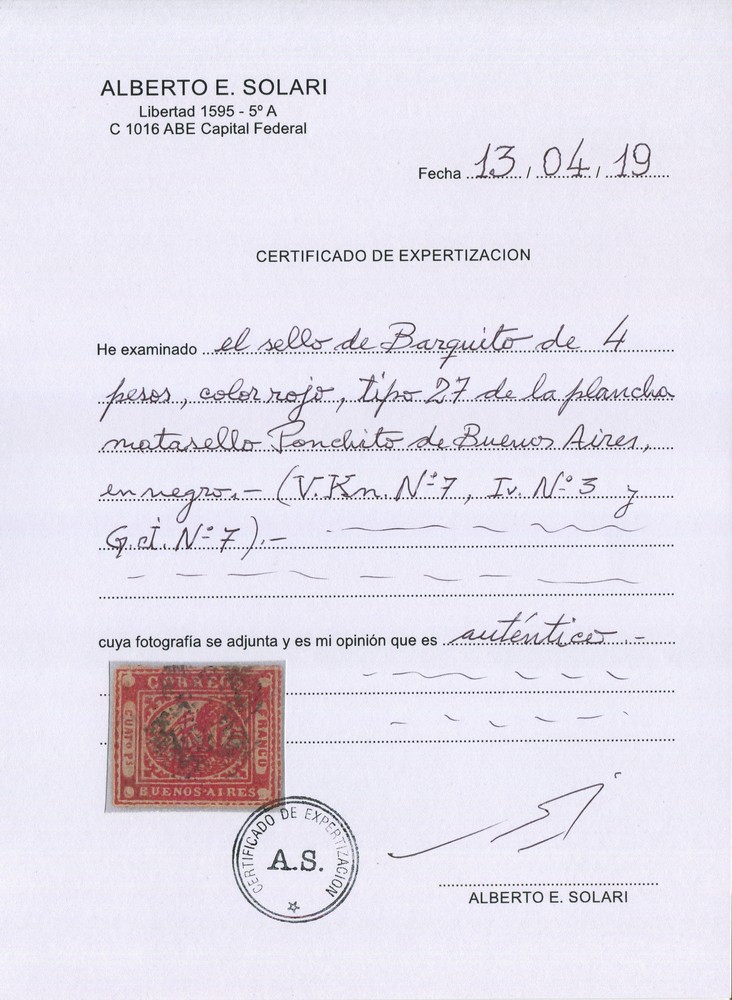 ALBERTO E. SOLARI
Libertad 1595 - 5º A
C 1016 ABE Capital Federal
Fecha 13 / 04 / 19
CERTIFICADO DE EXPERTIZACION
He examinado el sello de Barquito de 4
pesos, color rojo, tipo 27 de la plancha
matasello Ponchito de Buenos Aires,
en negro.- (V.Kn. Nº 7, Iv. Nº 3 y
G.J. Nº 7).-
cuya fotografía se adjunta y es mi opinión que es auténtico.-
CORREOS
CUATO PS
FRANCO
BUENOS-AIRES
CERTIFICADO DE EXPERTIZACION
A.S.
ALBERTO E. SOLARI